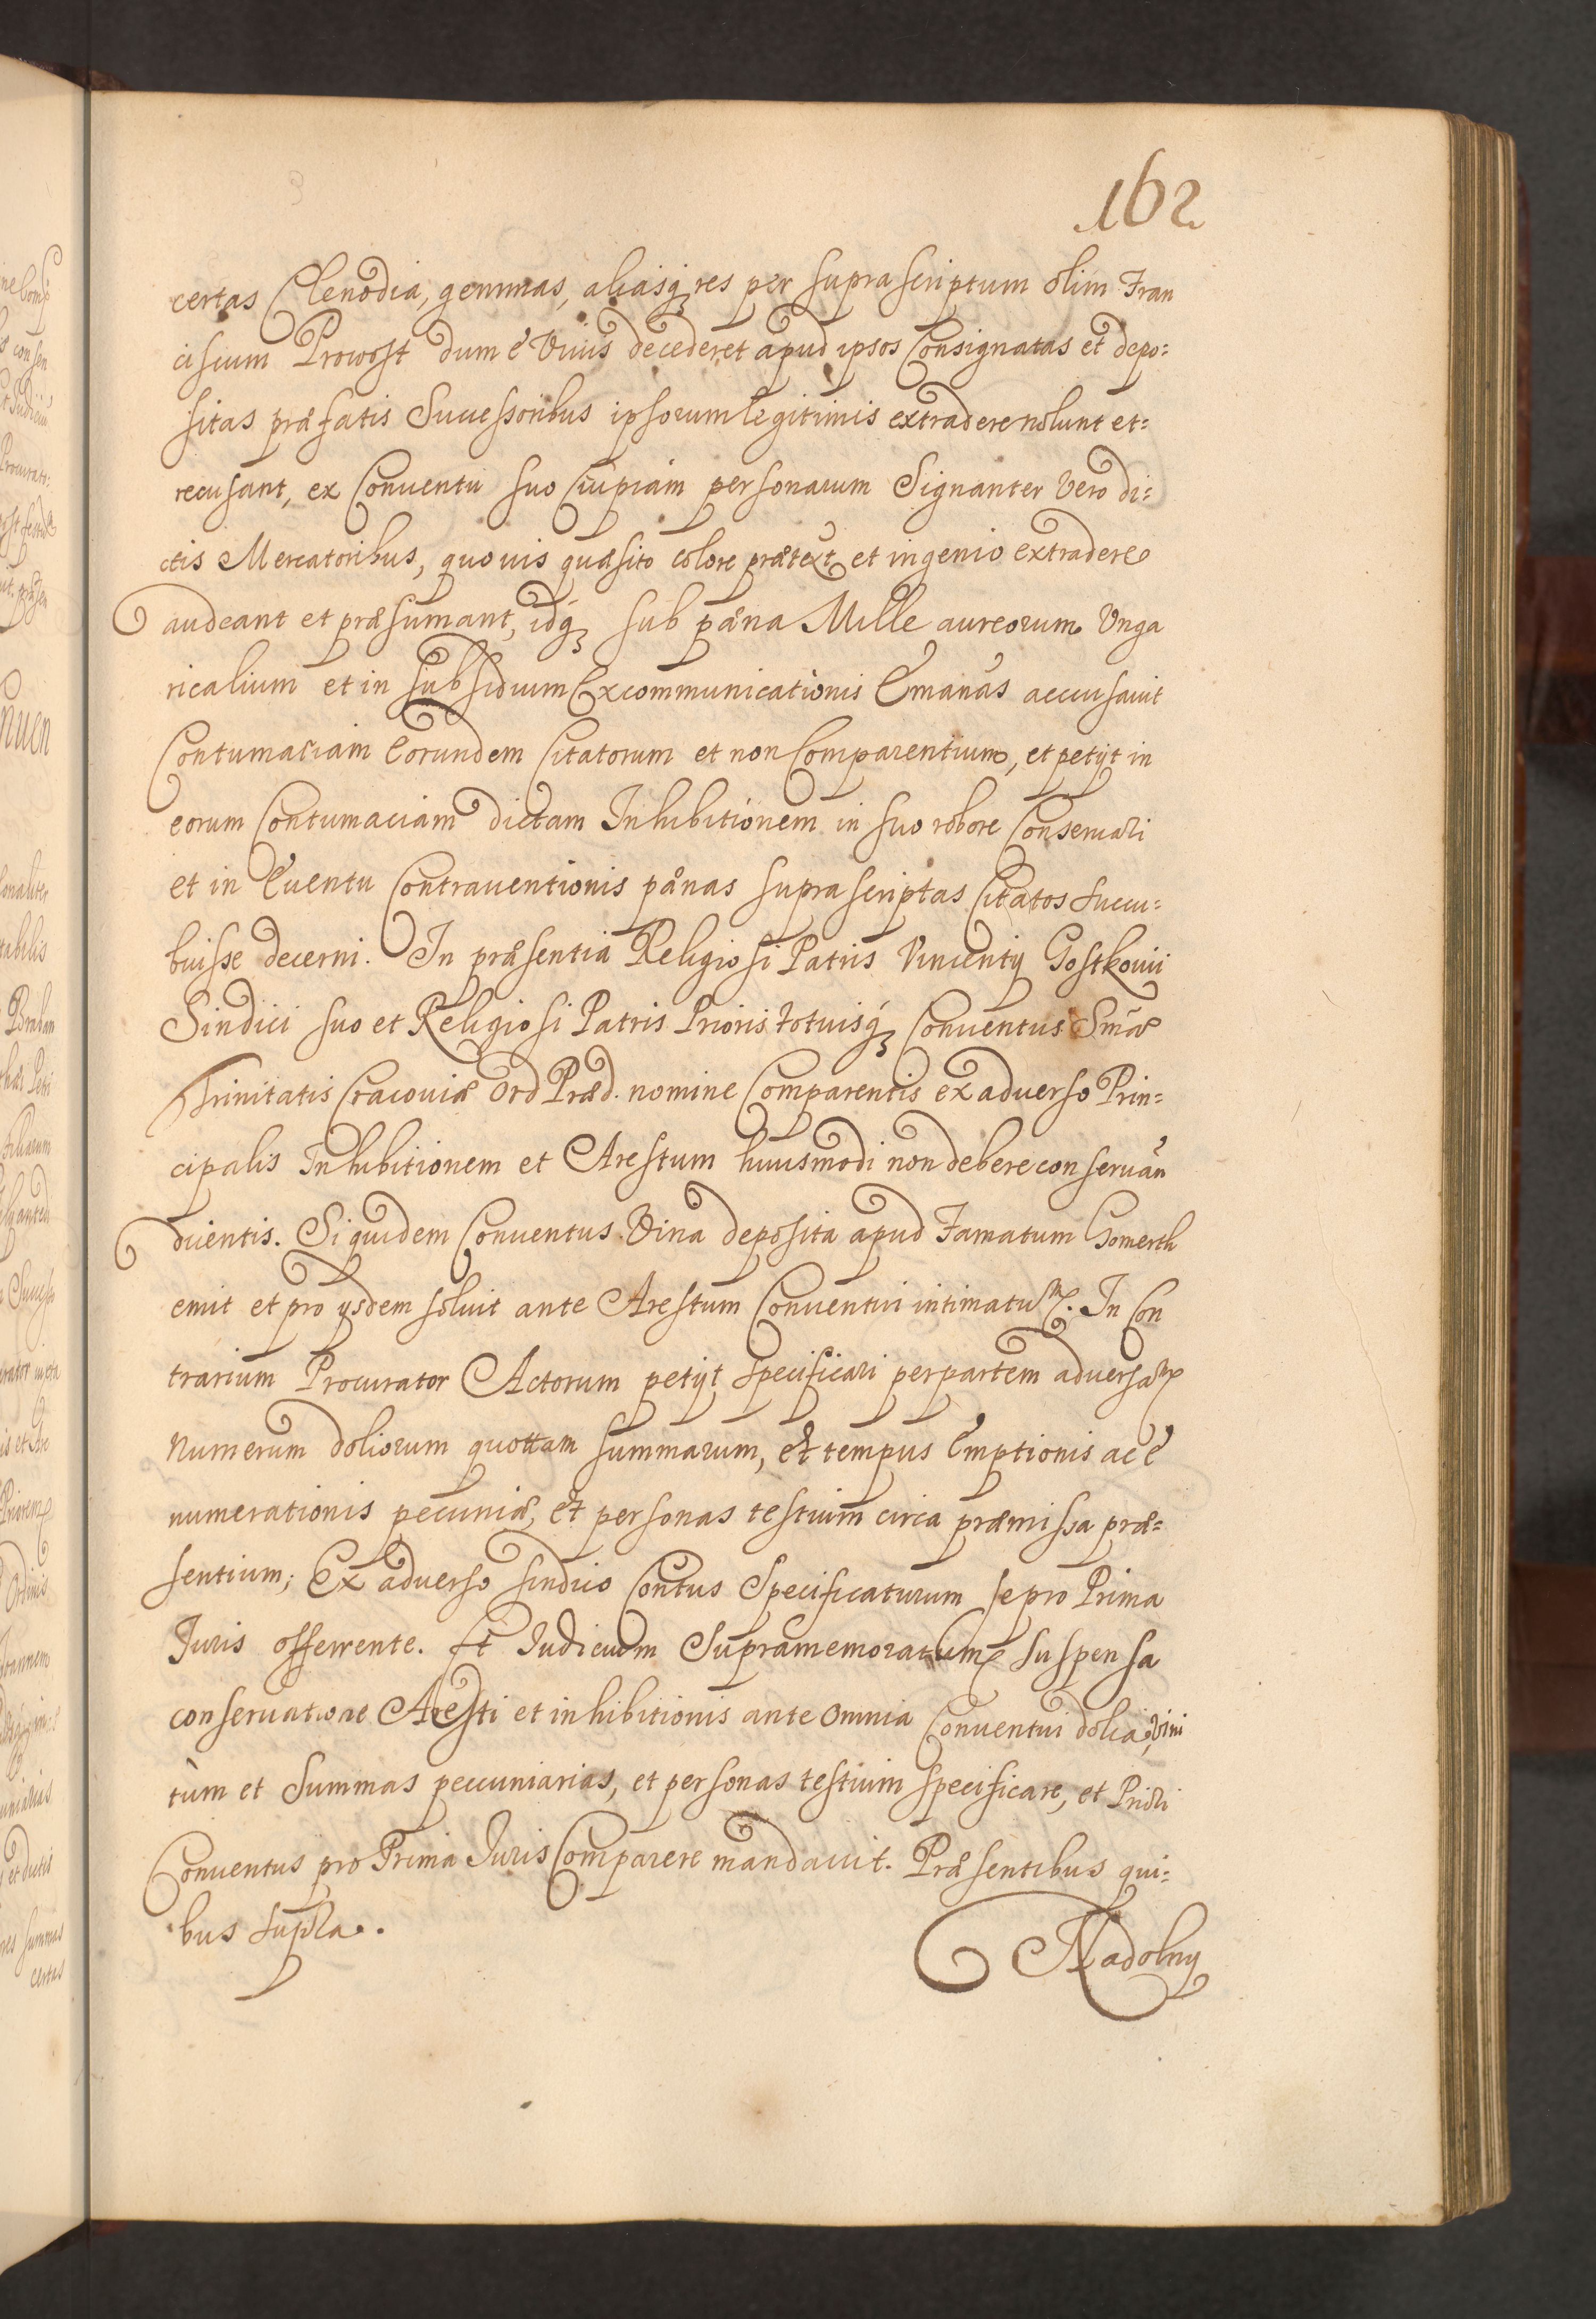 162
certas Clenodia, gemmas, aliasq́ꝫ res per suprascriptum olim Fran
ciscum Prowost dum è viuis decederet apud ipsos Consignatas et depo:
sitas præfatis Successoribus ipsorum legitimis extradere nolunt et:
recusant, ex Conuentu suo Cuipiam personarum Signanter Vero di:
ctis Mercatoribus, quouis quæsito colore prætext. et ingenio extradere
audeant et præsumant, idq́ꝫ sub pæna Mille aureorum Vnga
ricalium et in subsidium Excommunicationis Emanãs accusauit
Contumaciam Eorundem Citatorum et non Comparentium, et petijt in
eorum Contumaciam dictam Inhibitionem in suo robore Conseruari
et in Euentu Contrauentionis pænas suprascriptas Citatos succu:
buisse decerni. In præsentia Religiosi Patris Vincentij Gostkowii
Sindici suo et Religiosi Patris Prioris totiusq́ꝫ Conuentus Smæ
Trinitatis Cracouiæ Ord Præd. nomine Comparentis ex aduerso Prin:
cipalis Inhibitionem et Arestum huiusmodi non debere conseruari
dicentis. Siquidem Conuentus Vina deposita apud Famatum Gomerth
emit et pro ijsdem soluit ante Arestum Conuentui intimatum. In Con
trarium Procurator Actorum petijt specificari per partem aduersam
numerum doliorum quottam summarum, et tempus Emptionis ac è
numerationis pecuniæ, et personas testium circa præmissa præ:
sentium; Ex aduerso sindico Contus Specificaturum se pro Prima
Juris offerrente. Et Judicium Supramemoratum suspensa
conseruatione Aresti et inhibitionis ante omnia Conuentui dolia vini
tum et Summas pecuniarias, et personas testium specificare, et Pnõli
Conuentus pro Prima Juris Comparere mandauit. Præsentibus qui:
bus supra.
Nadolny